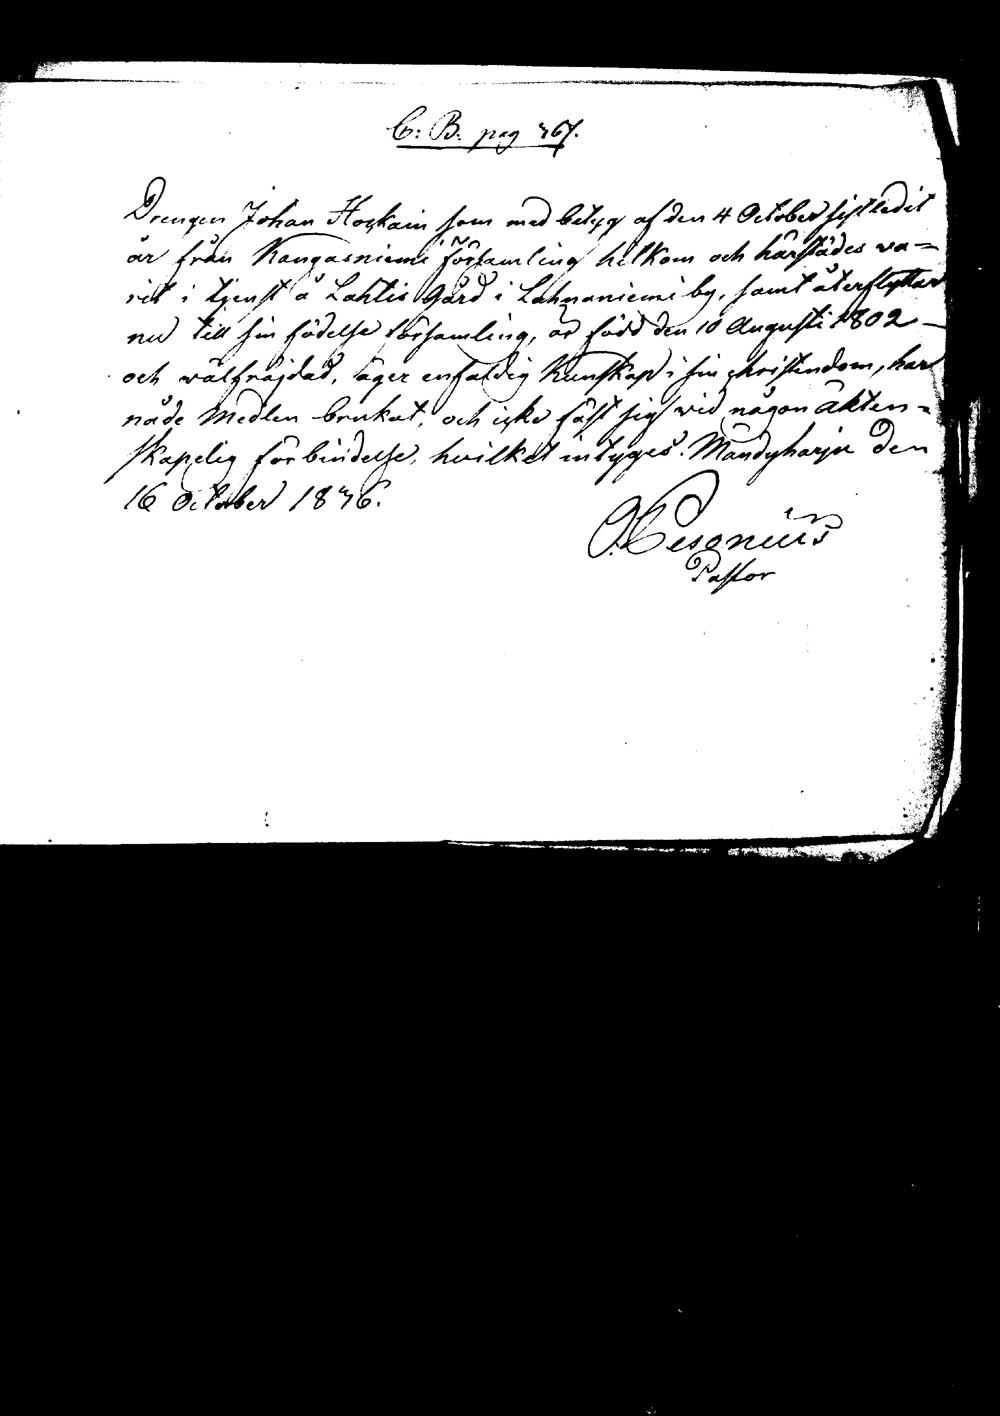 C: B: pag 367.
Drengen Johan Hoskain som med betyg af den 4 October sistledit
år från Kangasniemi församling hitkom och härstädes va=
rit i tjenst å Lahtis Gård i Lahnaniemi by, samt återflyttar
nu till sin födelse församling, är född den 10 Augusti 1802
och välfräjdad, äger enfaldig kunskap i sin christendom, har
nåde Medlen brukat, och icke fäst sig vid någon äkten=
skapelig förbindelse, hvilket intygas. Mandyharju den
16 October 1836.
Pastor